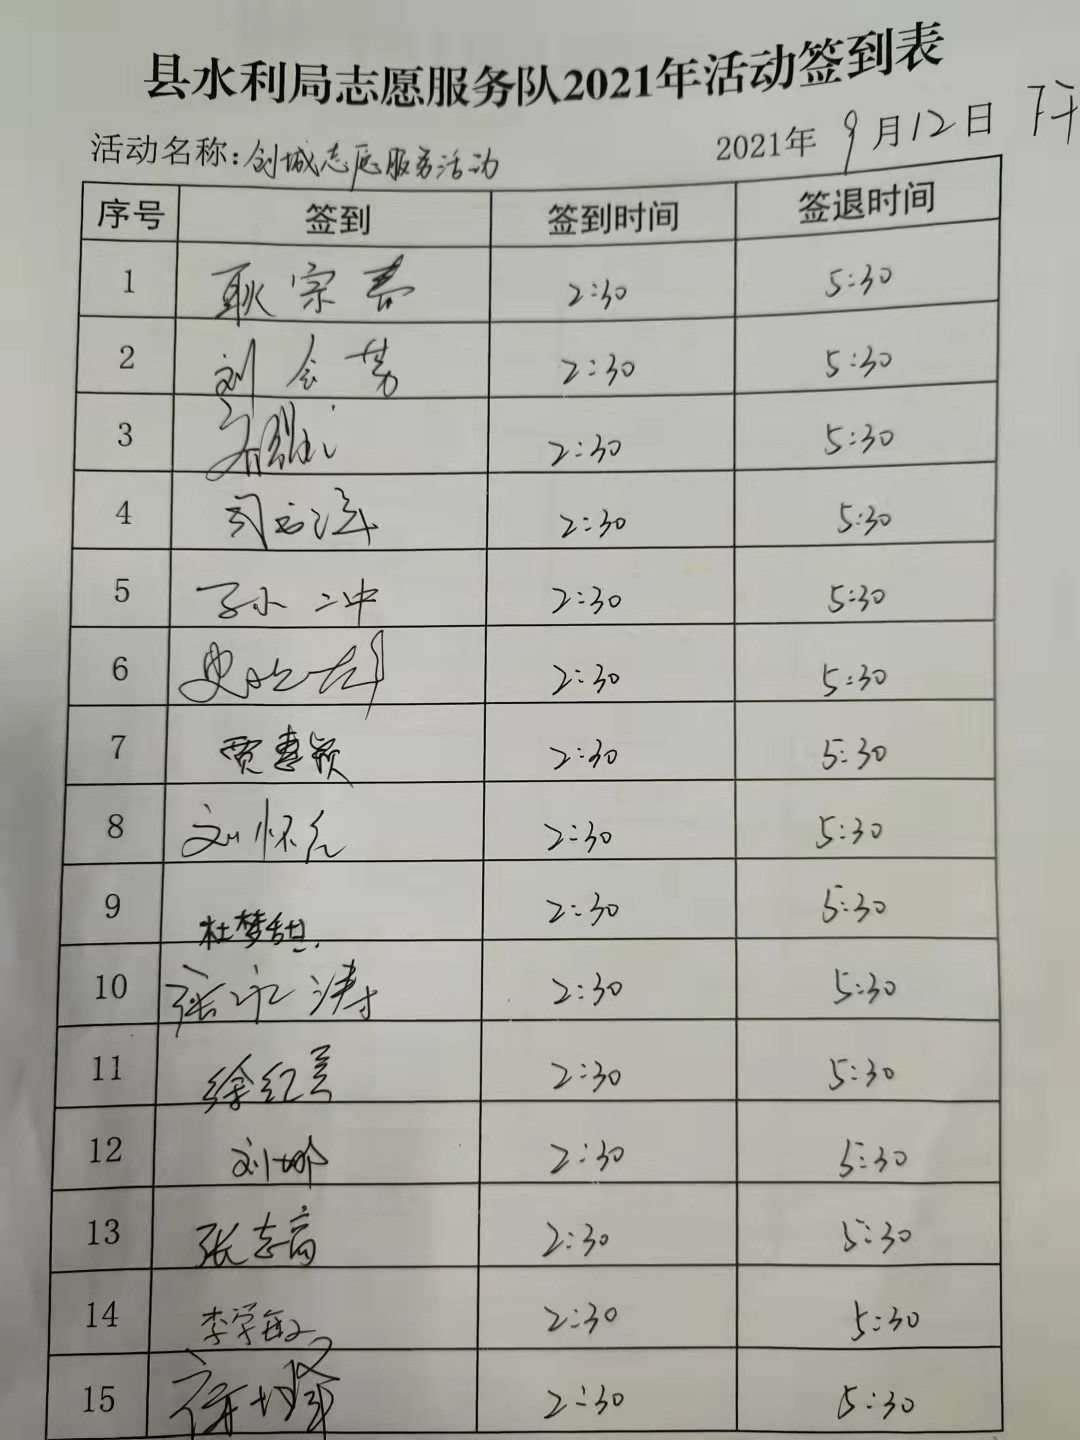 县水利局志愿服务队2021年活动签到表
活动名称:创城志愿服务活动 2021年9月12日 下午
序号 签到 签到时间 签退时间
1 耿宗春 2:30 5:30
2 刘会芳 2:30 5:30
3 2:30 5:30
4 2:30 5:30
5 孙冲 2:30 5:30
6 2:30 5:30
7 贾喜颖 2:30 5:30
8 刘怀 2:30 5:30
9 杜梦甜 2:30 5:30
10 张永涛 2:30 5:30
11 徐红 2:30 5:30
12 刘娜 2:30 5:30
13 张志高 2:30 5:30
14 李学敏 2:30 5:30
15 2:30 5:30